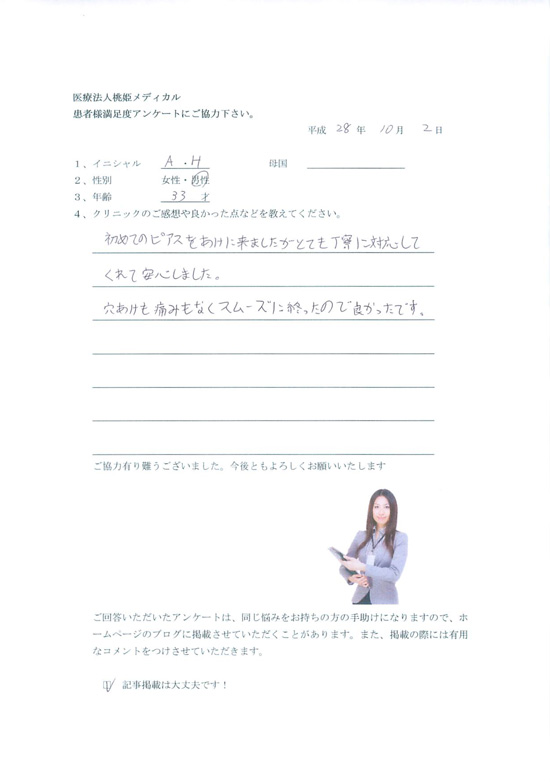 医療法人桃姫メディカル
患者様満足度アンケートにご協力下さい。
平成 28 年 10 月 2 日
1、イニシャル A・H 母国
2、性別 女性・男性
3、年齢 33 才
4、クリニックのご感想や良かった点などを教えてください。
初めてのピアスをあけに来ましたがとても丁寧に対応して
くれて安心しました。
穴あけも痛みもなくスムーズに終ったので良かったです。
ご協力有り難うございました。今後ともよろしくお願いいたします
ご回答いただいたアンケートは、同じ悩みをお持ちの方の手助けになりますので、ホ
ームページのブログに掲載させていただくことがあります。また、掲載の際には有用
なコメントをつけさせていただきます。
☑ 記事掲載は大丈夫です！